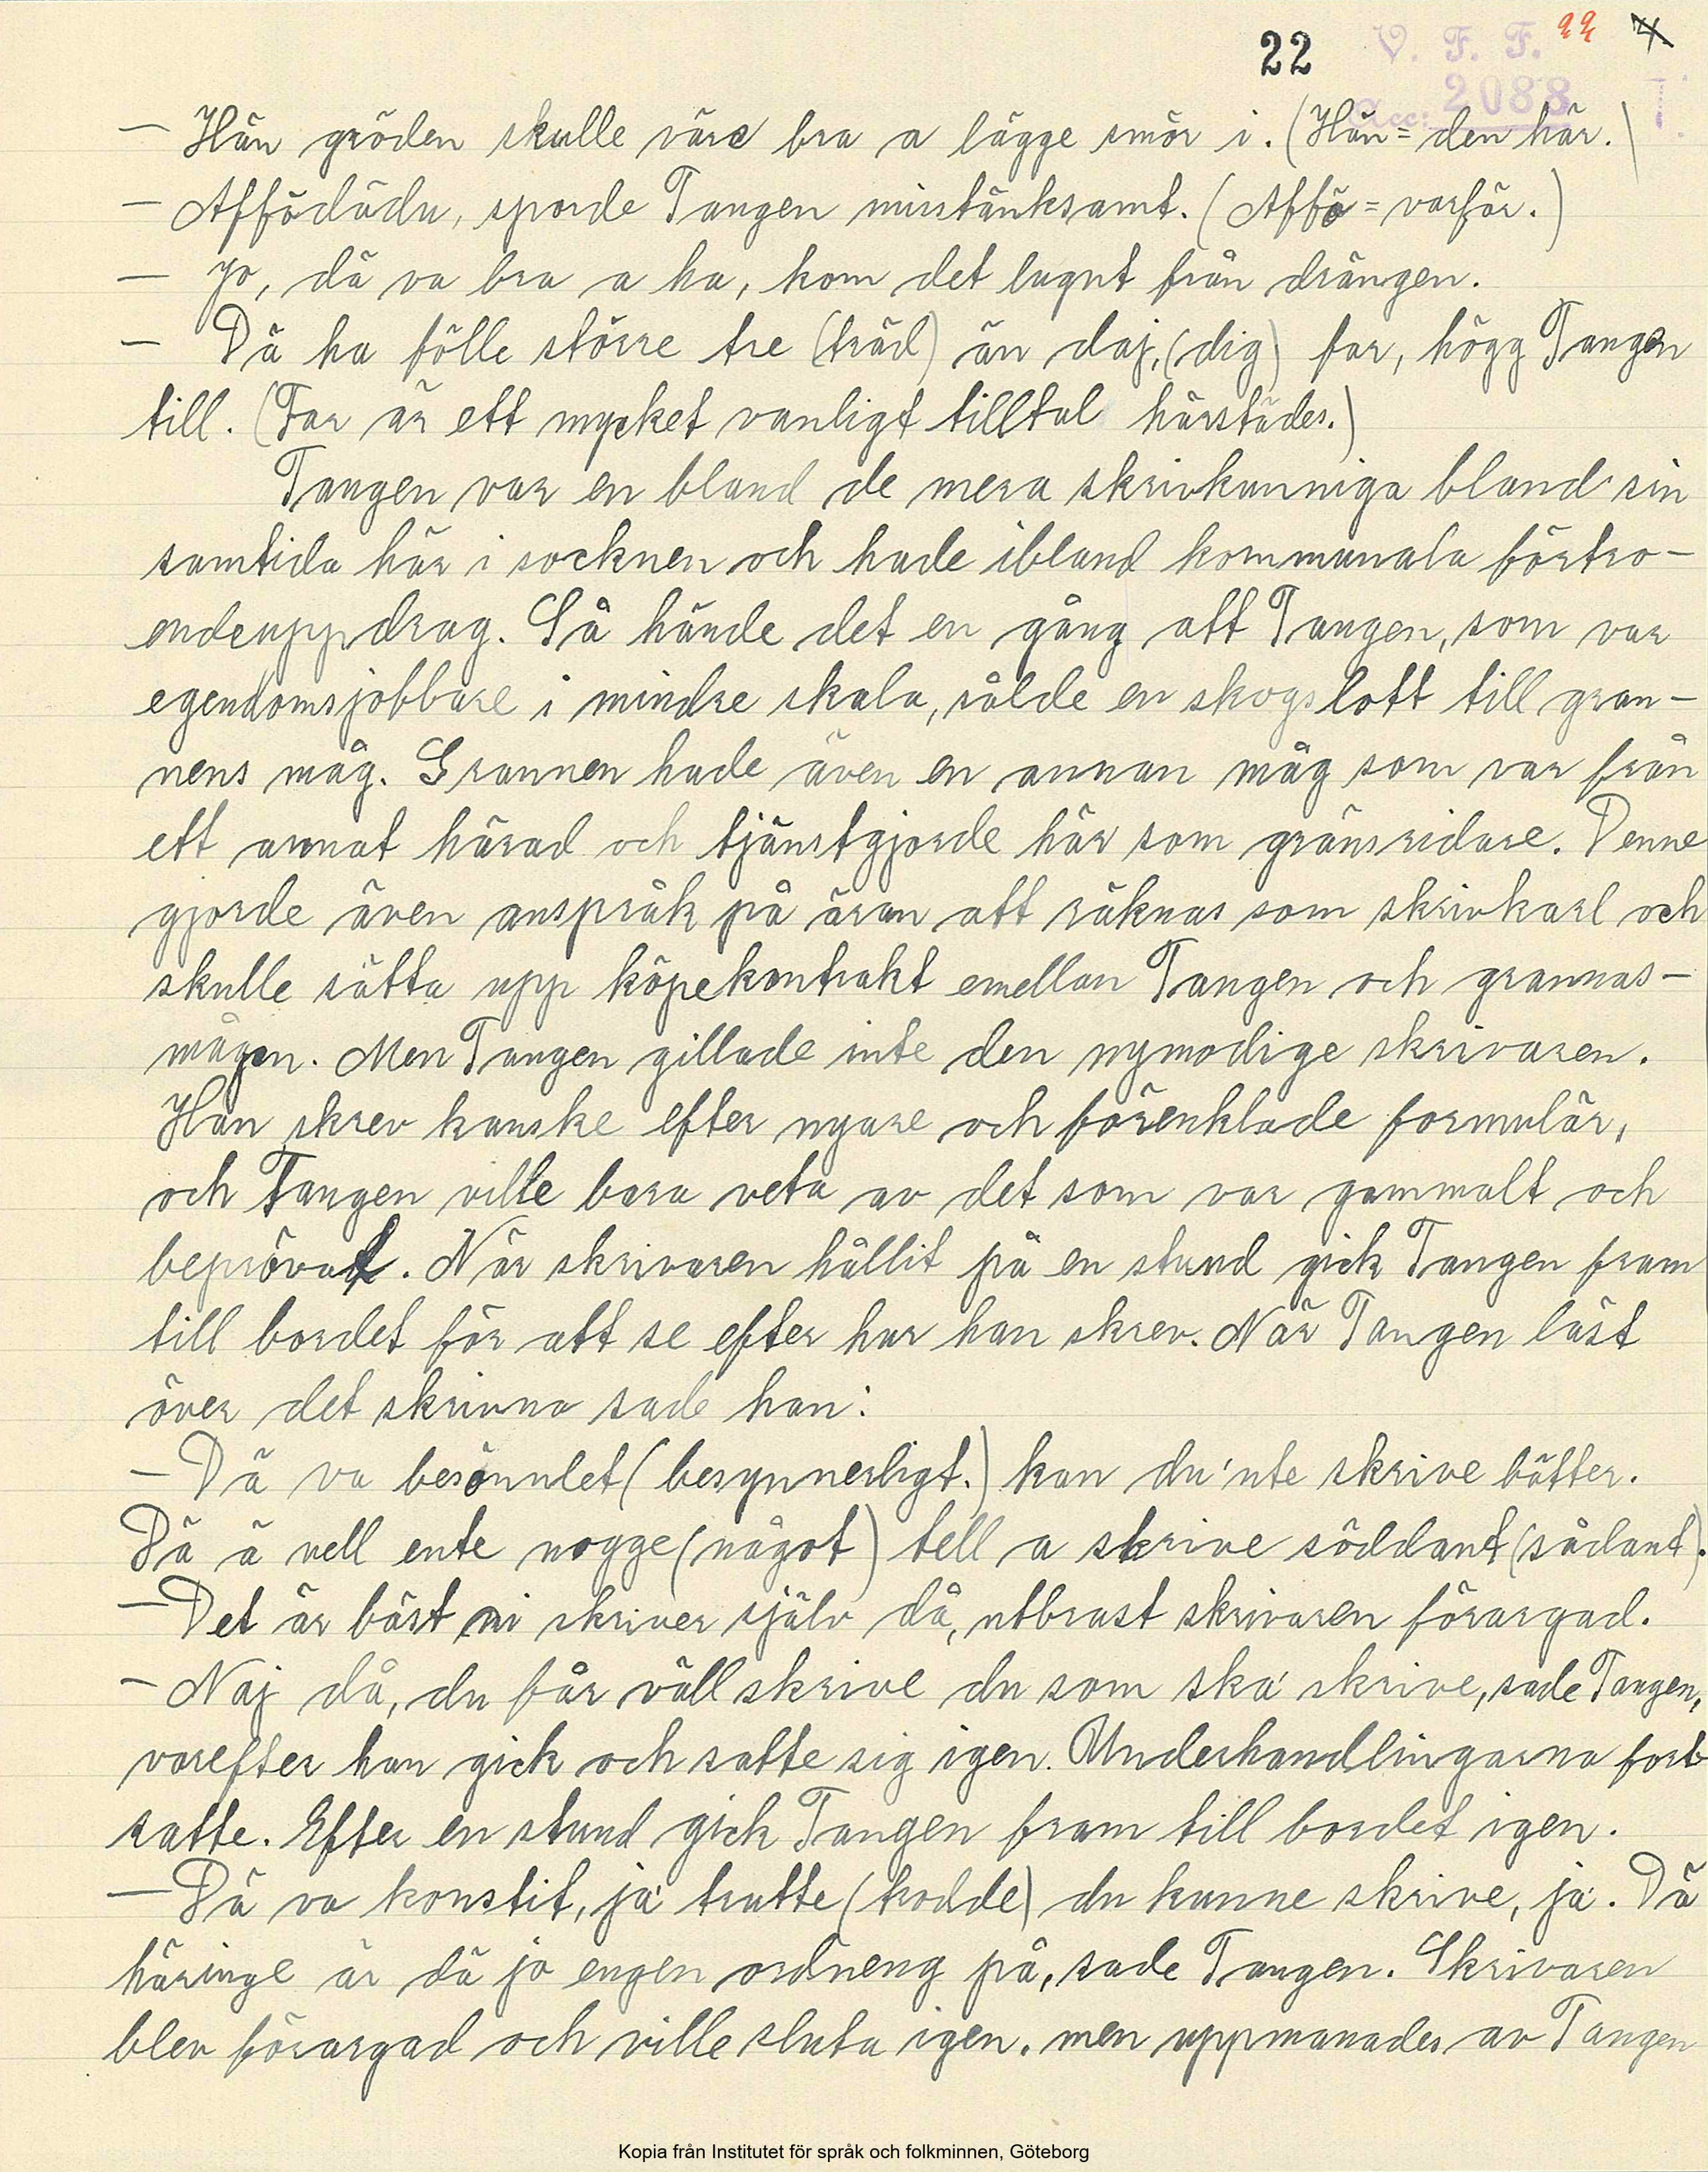 22 V. F. F. 22 4
Acc: 2088 I.
— Hän gröden skulle väre bra a lägge smör i. (Hän = den här.)
— Affödädu, sporde Tangen misstänksamt. (Affö = varför.)
— Jo, dä va bra a ha, kom det lugnt från drängen.
— Dä ha fölle större tre (träd) än daj, (dig) far, högg Tangen
till. (Far är ett mycket vanligt tilltal härstädes.)
Tangen var en bland de mera skrivkunniga bland sin
samtida här i socknen och hade ibland kommunala förtro-
endeuppdrag. Så hände det en gång att Tangen, som var
egendomsjobbare i mindre skala, sålde en skogslott till gran-
nens måg. Grannen hade även en annan måg som var från
ett annat härad och tjänstgjorde här som gränsridare. Denne
gjorde även anspråk på äran att räknas som skrivkarl och
skulle sätta upp köpekontrakt emellan Tangen och grannas-
mågen. Men Tangen gillade inte den nymodige skrivaren.
Han skrev kanske efter nyare och förenklade formulär,
och Tangen ville bara veta av det som var gammalt och
beprövat. När skrivaren hållit på en stund gick Tangen fram
till bordet för att se efter hur han skrev. När Tangen läst
över det skrivna sade han:
— Dä va besönnlet (besynnerligt.) kan du'nte skrive bätter.
Dä ä vell ente nogge (något) tell a skrive söddant (sådant).
— Det är bäst ni skriver själv då, utbrast skrivaren förargad.
— Naj då, du får väll skrive du som ska' skrive, sade Tangen,
varefter han gick och satte sig igen. Underhandlingarna fort
satte. Efter en stund gick Tangen fram till bordet igen.
— Dä va konstit, ja' trutte (trodde) du kunne skrive, ja'. Dä
häringe är dä jo engen ordneng på, sade Tangen. Skrivaren
blev förargad och ville sluta igen, men uppmanades av Tangen
Kopia från Institutet för språk och folkminnen, Göteborg